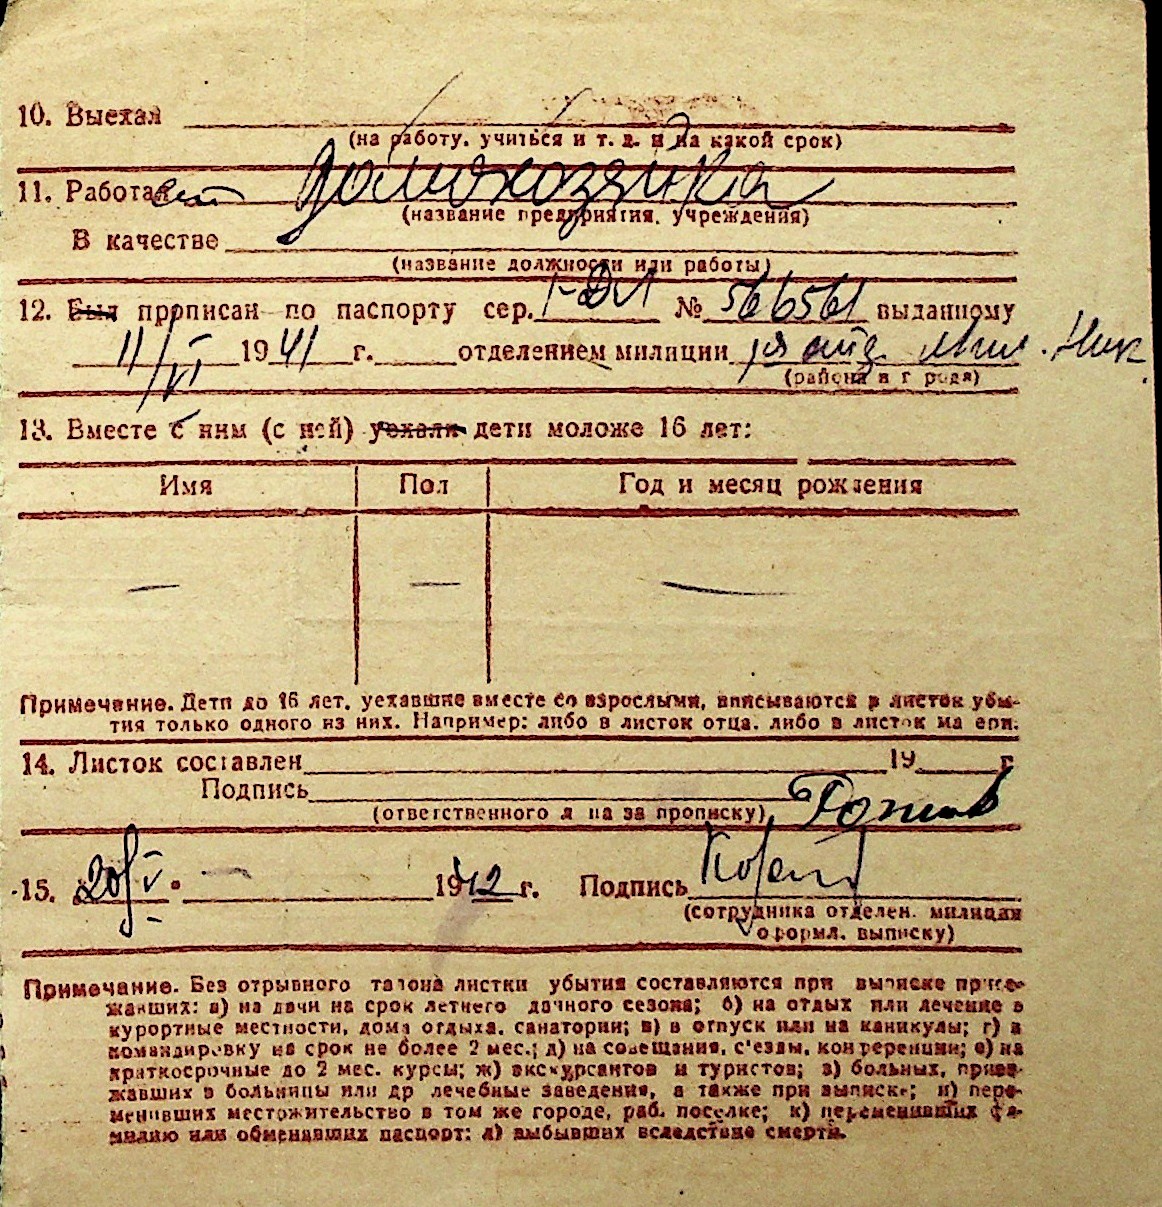 10. Выехал
(на работу, учиться и т. д. и на какой срок)
11. Работает домохозяйка
(название предприятия, учреждения)
В качестве
(название должности или работы)
12. Был прописан по паспорту сер. I-ДЛ № 566561 выданному
11/VI 1941 г. отделением милиции
(района и города)
13. Вместе с ним (с ней) уехали дети моложе 16 лет:
Имя Пол Год и месяц рождения
— — —
Примечание. Дети до 16 лет, уехавшие вместе со взрослыми, вписываются в листок убы-
тия только одного из них. Например: либо в листок отца, либо в листок матери.
14. Листок составлен 19 г.
Подпись
(ответственного лица за прописку)
15. 20/V 1942 г. Подпись
(сотрудника отделен. милиции
оформл. выписку)
Примечание. Без отрывного талона листки убытия составляются при выписке приез-
жавших: а) на дачи на срок летнего дачного сезона; б) на отдых или лечение в
курортные местности, дома отдыха, санатории; в) в отпуск или на каникулы; г) в
командировку на срок не более 2 мес.; д) на совещания, с'езды, конференции; е) на
краткосрочные до 2 мес. курсы; ж) экскурсантов и туристов; з) больных, приез-
жавших в больницы или др лечебные заведения, а также при выписке; и) пере-
менивших местожительство в том же городе, раб. поселке; к) переменивших фа-
милию или обменявших паспорт; л) выбывших вследствие смерти.